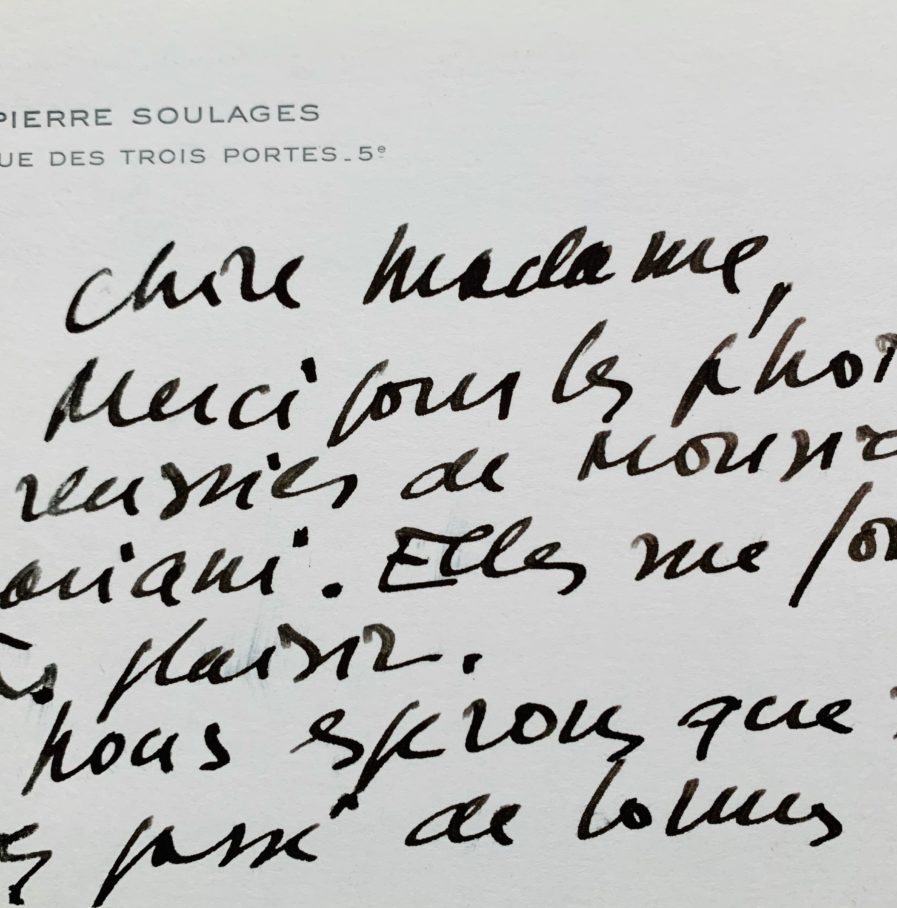 PIERRE SOULAGES
UE DES TROIS PORTES_5e
Chère Madame,
Merci pour les phot
reussies de Monsie
oriani. Elles me fon
plaisir.
Nous espérons que
passé de bonnes